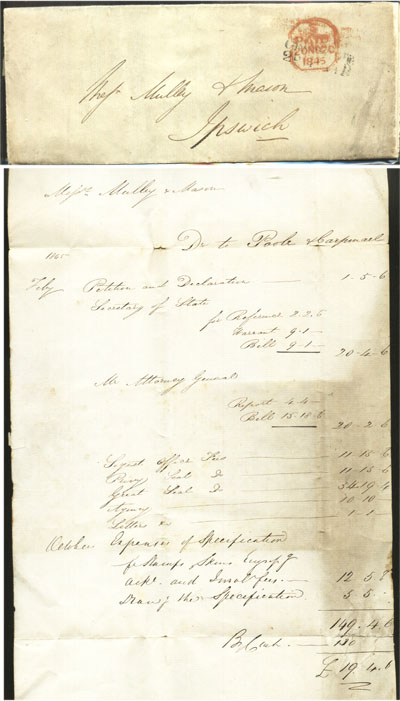 PAID
1845
Messrs Mulley & Mason
Ipswich
Messrs Mulley & Mason
1845
Dr to Poole & Carpmael
Feby Petition and Declaration 1-5-6
Secretary of State
for Reference 2.2.6
Warrant 9.1-
Bill 9-1- 20-4-6
Mr Attorney Generals
Report 4.4-
Bill 15.18.6 20-2-6
Signet Office Fees 11-15-6
Privy Seal Do 11-15-6
Great Seal Do 34.19.4
Agency 10.10
Letters &c 1-1
October Expenses of Specification
for Stamps, Skins, Engrossg
ackt and Inrolt fees 12 5 8
Drawg the Specification 5 5
149.4.6
By Cash 130
£ 19.4.6